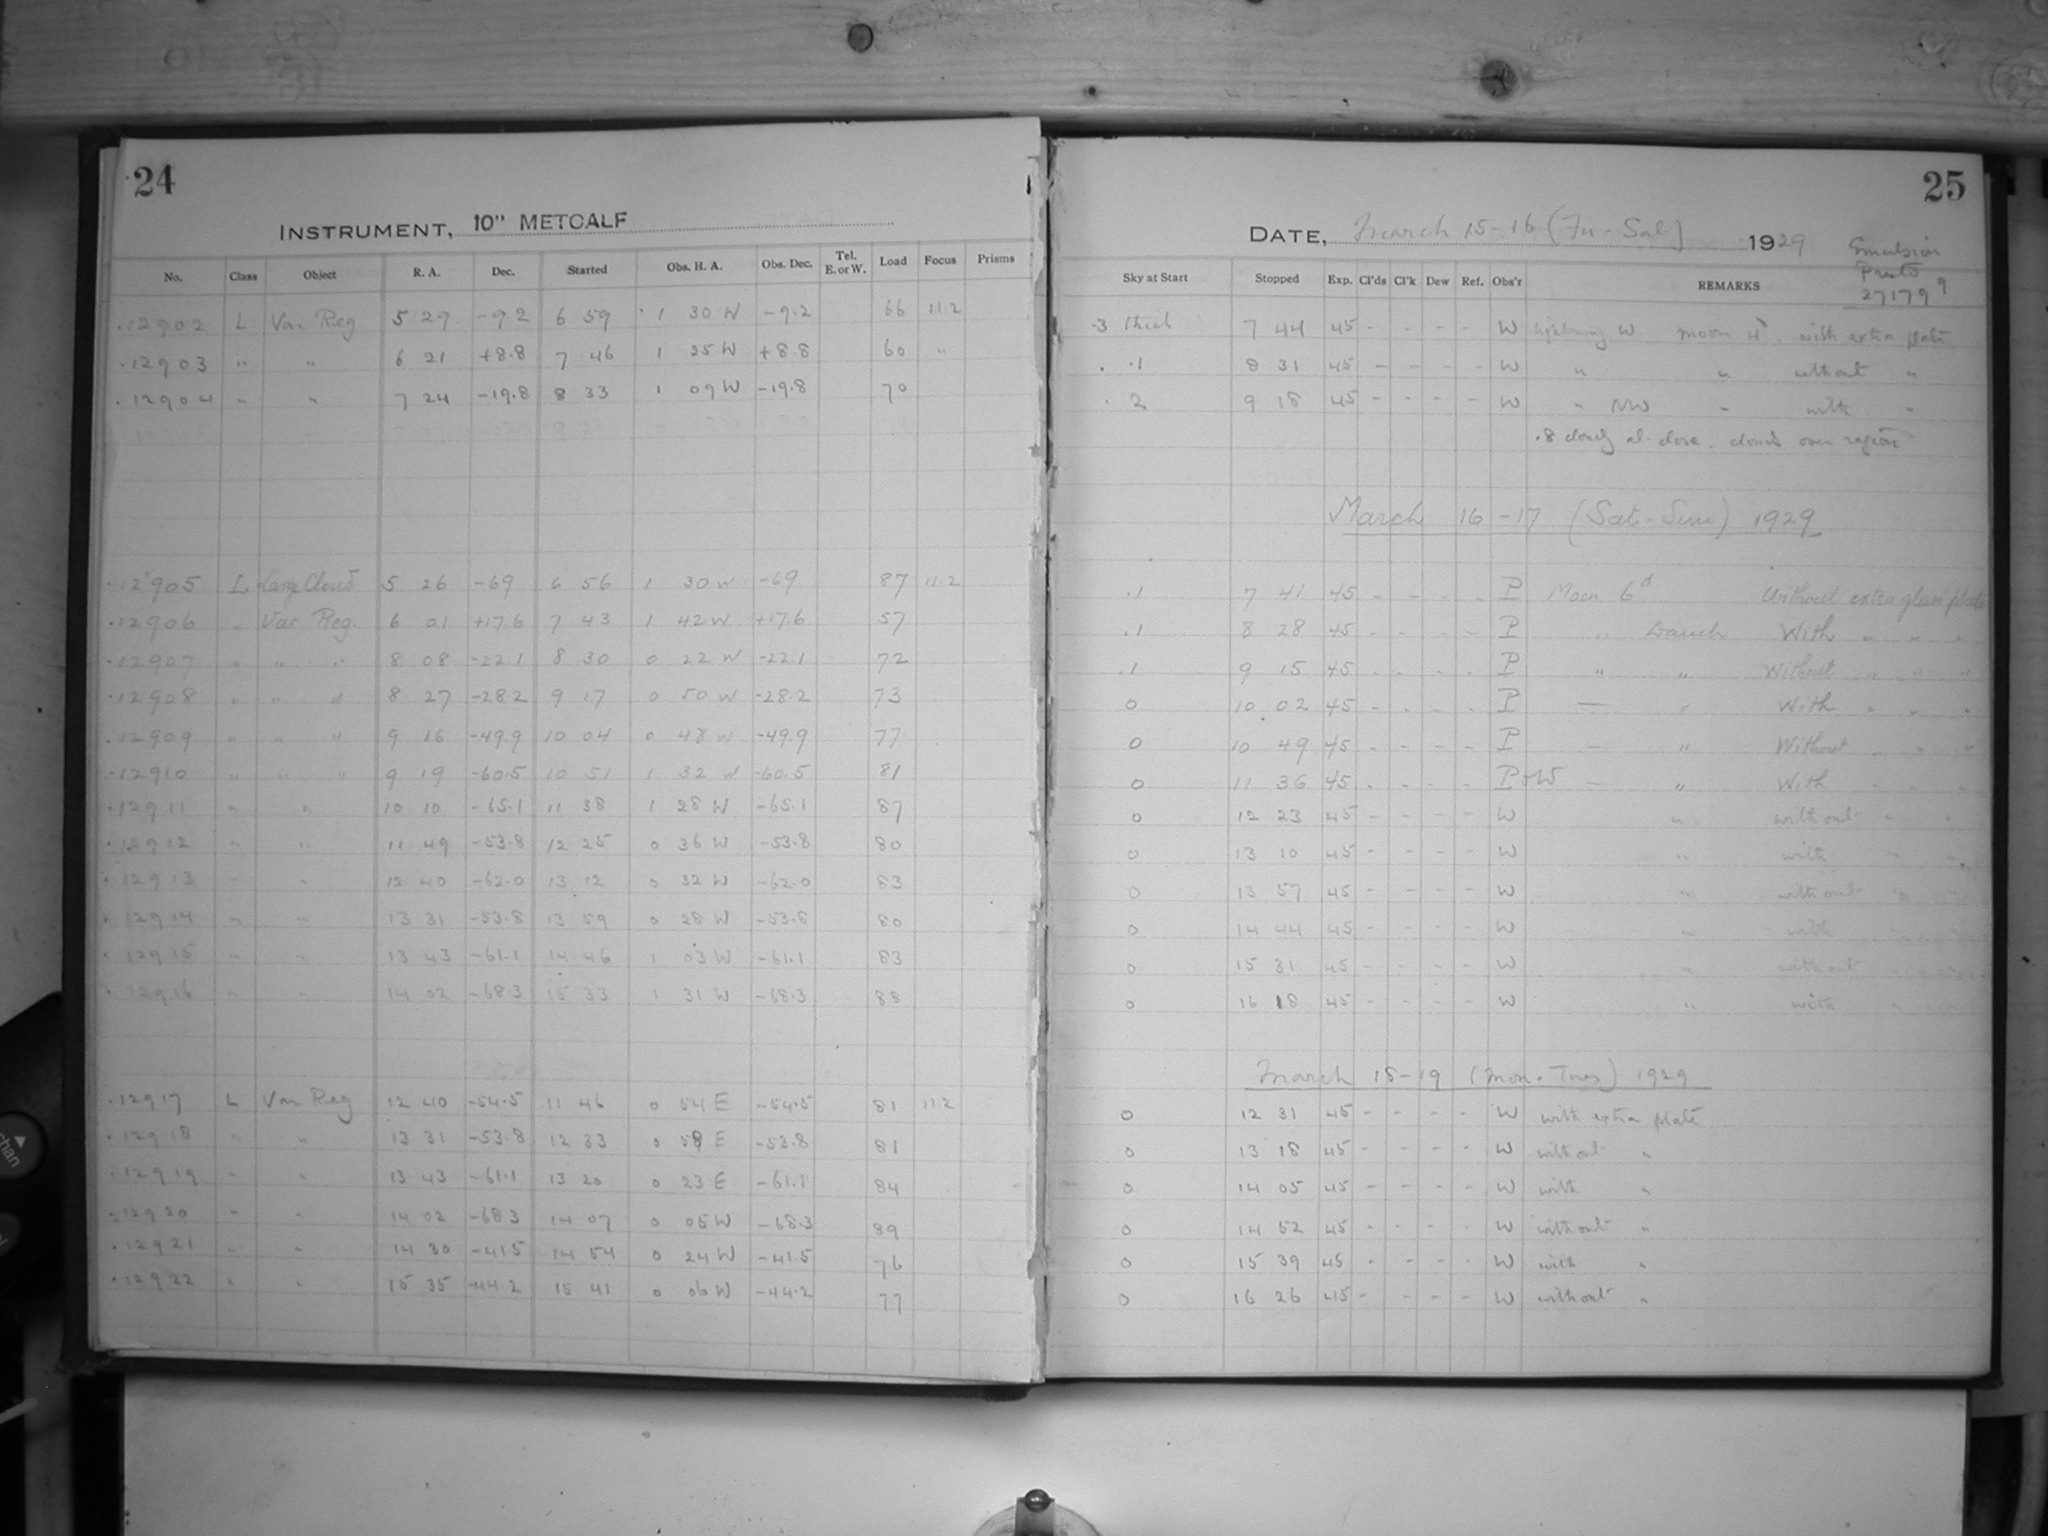 24
INSTRUMENT, 10" METCALF
No. Class Object R. A. Dec. Started Obs. H. A. Obs. Dec. Tel. E. or W. Load Focus Prisms
12902 L Var Reg 5 29 -9.2 6 59 1 30 W -9.2 66 11.2
12903 " " 6 21 +8.8 7 46 1 25 W +8.8 60 "
12904 " " 7 24 -19.8 8 33 1 09 W -19.8 70
12905 L Large Cloud 5 26 -69 6 56 1 30 W -69 87 11.2
12906 " Var Reg. 6 01 +17.6 7 43 1 42 W +17.6 57
12907 " " " 8 08 -22.1 8 30 0 22 W -22.1 72
12908 " " " 8 27 -28.2 9 17 0 50 W -28.2 73
12909 " " " 9 16 -49.9 10 04 0 48 W -49.9 77
12910 " " " 9 19 -60.5 10 51 1 32 W -60.5 81
12911 " " 10 10 -65.1 11 38 1 28 W -65.1 87
12912 " " 11 49 -53.8 12 25 0 36 W -53.8 80
12913 " " 12 40 -62.0 13 12 0 32 W -62.0 83
12914 " " 13 31 -53.8 13 59 0 28 W -53.8 80
12915 " " 13 43 -61.1 14 46 1 03 W -61.1 83
12916 " " 14 02 -68.3 15 33 1 31 W -68.3 88
12917 L Var Reg 12 40 -54.5 11 46 0 54 E -54.5 81 11.2
12918 " " 13 31 -53.8 12 33 0 58 E -53.8 81
12919 " " 13 43 -61.1 13 20 0 23 E -61.1 84
12920 " " 14 02 -68.3 14 07 0 05 W -68.3 89
12921 " " 14 30 -41.5 14 54 0 24 W -41.5 76
12922 " " 15 35 -44.2 15 41 0 06 W -44.2 77
25
DATE, March 15-16 (Fri-Sat) 1929
Emulsion
Presto
27179
Sky at Start Stopped Exp. Cl'ds Cl'k Dew Ref. Obs'r REMARKS
.3 thick 7 44 45 - - - - W lightning W. moon 4d. with extra plate
.1 8 31 45 - - - - W " " without "
.2 9 18 45 - - - - W " NW " with "
.8 cloudy at close. clouds over region
March 16-17 (Sat-Sun) 1929
.1 7 41 45 - - - - P Moon 6d Without extra glass plate
.1 8 28 45 - - - - P " With " " "
.1 9 15 45 - - - - P " " Without " " "
0 10 02 45 - - - - P — " With " " "
0 10 49 45 - - - - P — " Without " " "
0 11 36 45 - - - - P+W — " With " " "
0 12 23 45 - - - - W " without " "
0 13 10 45 - - - - W " with " "
0 13 57 45 - - - - W " without " "
0 14 44 45 - - - - W " with
0 15 31 45 - - - - W " without
0 16 18 45 - - - - W " with "
March 18-19 (Mon-Tues) 1929
0 12 31 45 - - - - W with extra plate
0 13 18 45 - - - - W without "
0 14 05 45 - - - - W with "
0 14 52 45 - - - - W without "
0 15 39 45 - - - - W with "
0 16 26 45 - - - - W without "